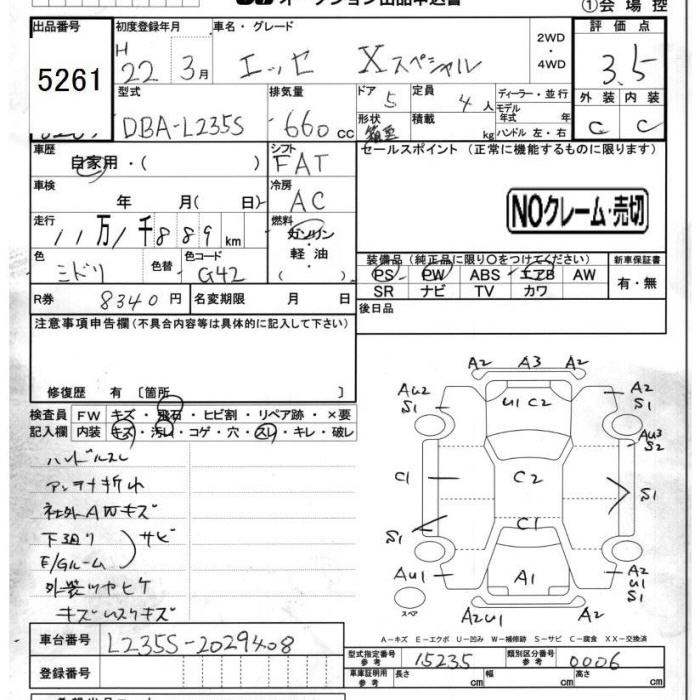 オークション出品申込書
①会場控
出品番号 5261
初度登録年月 H 22 3月
車名・グレード エッセ Xスペシャル
2WD・4WD
評価点 3.5
型式 DBA-L235S
排気量 660 cc
ドア 5
定員 4人
ディーラー・並行
モデル年式 年
形状 箱型
積載 kg
ハンドル 左・右
外装 C
内装 C
車歴 自家用・( )
シフト FAT
セールスポイント (正常に機能するものに限ります)
車検 年 月( 日)
冷房 AC
NOクレーム・売切
走行 11万1千889km
燃料 ガソリン・軽油・( )
色 ミドリ
色替
色コード G42
装備品 (純正品に限り〇をつけてください)
新車保証書
PS PW ABS エアB AW
有・無
SR ナビ TV カワ
R券 8340円
名変期限 月 日
後日品
注意事項申告欄(不具合内容等は具体的に記入して下さい)
修復歴 有 〔箇所 〕
検査員記入欄
FW キズ・飛石・ヒビ割・リペア跡・×要
内装 キズ・汚れ・コゲ・穴・スレ・キレ・破レ
ハンドルスレ
アンテナ折れ
社外AWキズ
下廻り
E/Gルーム
サビ
外装ツヤヒケ
A2 A3 A2
AU2 S1
U1 C2
A2 S1
AU3 S2
C1 C2 S1
S1 C1
AU1 A1 A2 U1 S1
スペア
A2U1 A2
A-キズ E-エクボ U-凹み W-補修跡 S-サビ C-腐食 XX-交換済
車台番号 L235S-2029408
登録番号
型式指定番号 参考 15235
類別区分番号 参考 0006
車庫証明用 参考 長さ cm 幅 cm 高さ cm